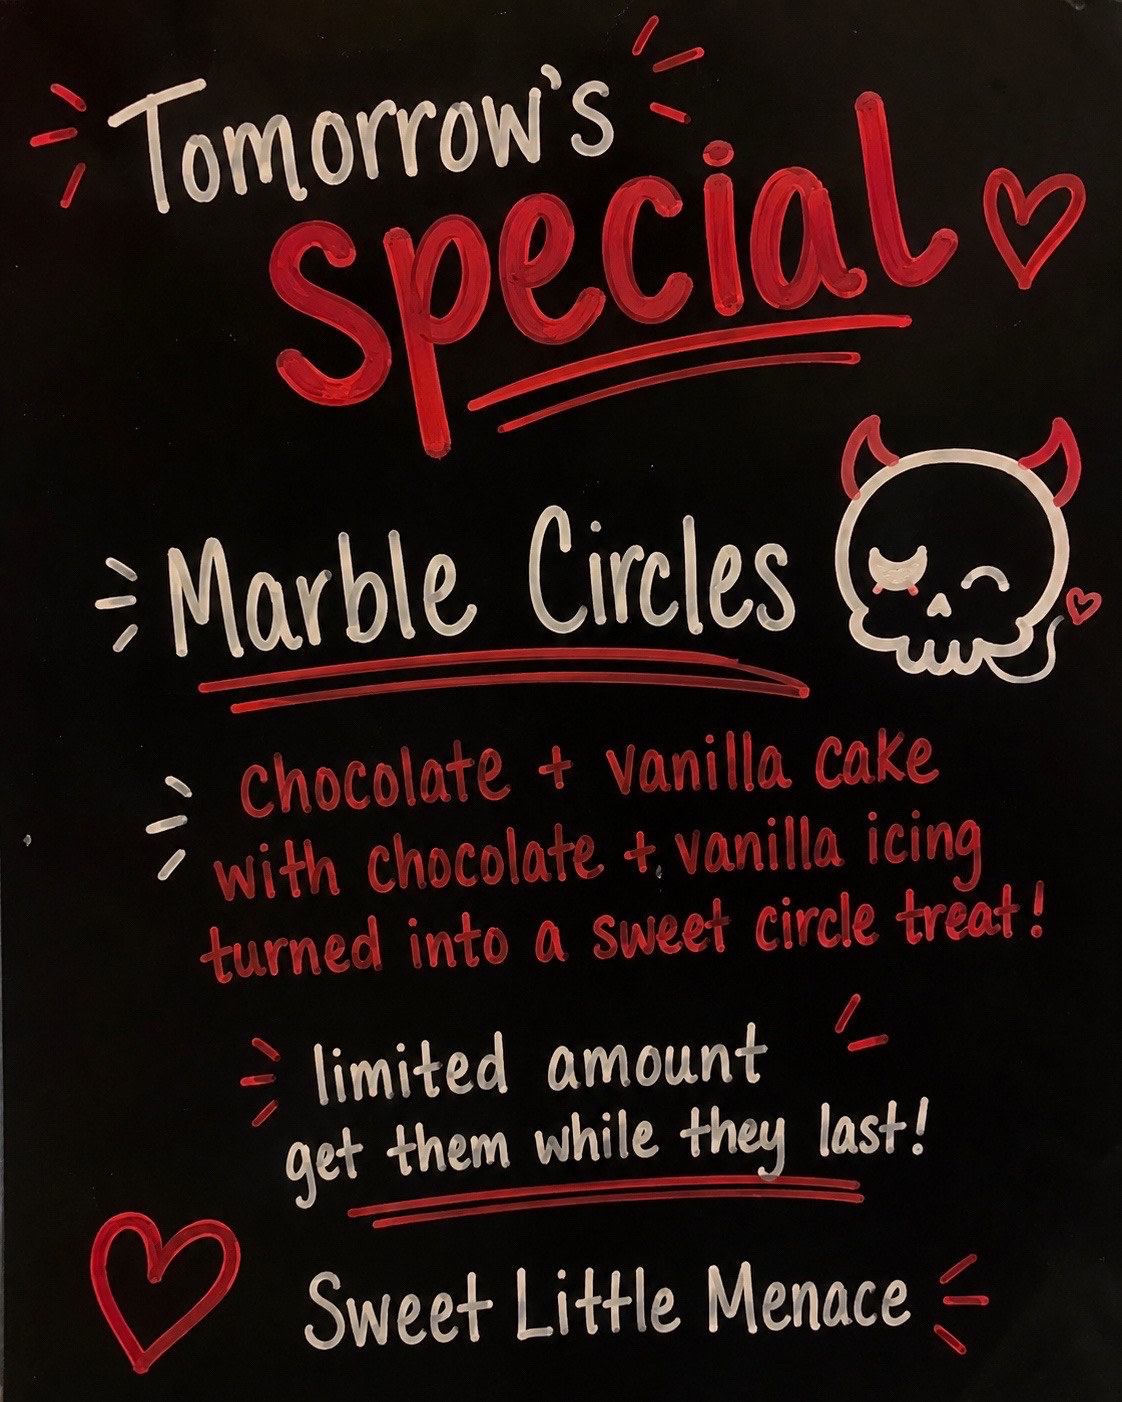 Tomorrow's
special
Marble Circles
chocolate + vanilla cake
with chocolate + vanilla icing
turned into a sweet circle treat!
limited amount
get them while they last!
Sweet Little Menace